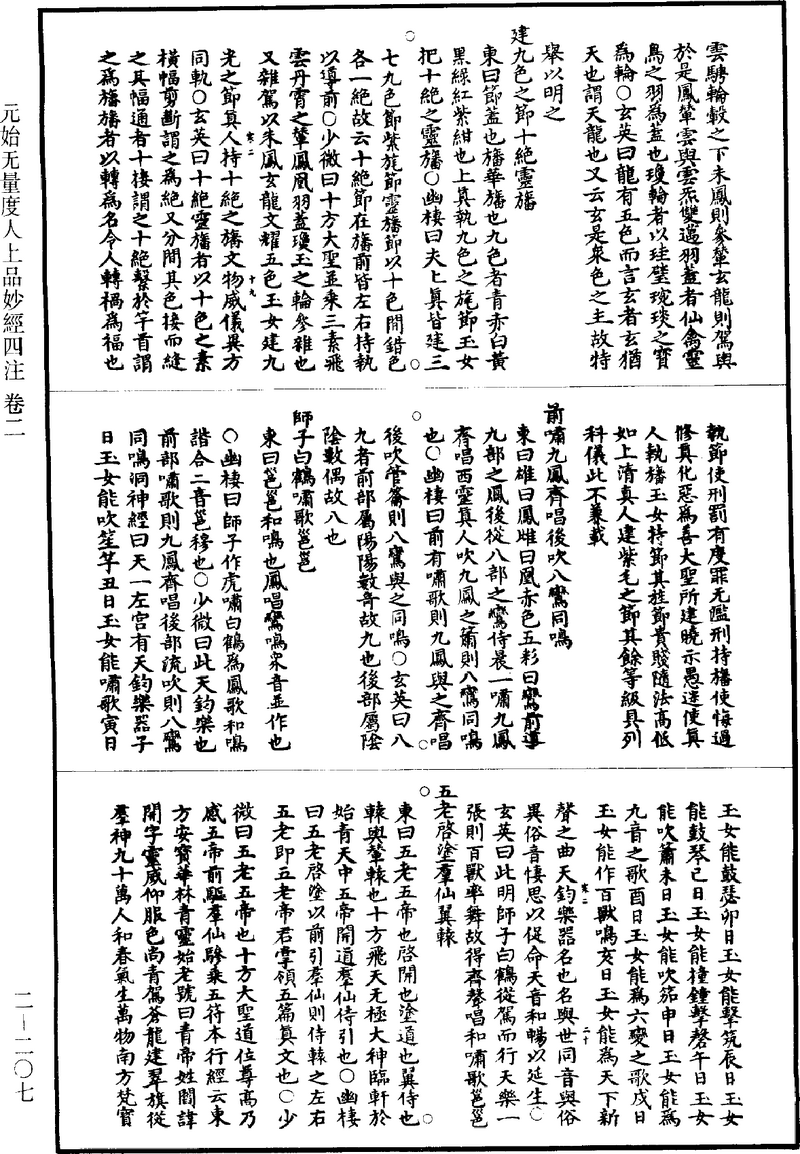 元始无量度人上品妙經四注 卷二
二—二〇七
雲騁輪轂之下朱鳳則參輦玄龍則駕輿
於是鳳輦雲輿雲炁雙邁羽蓋者仙禽靈
鳥之羽為蓋也瓊輪者以珪璧琬琰之寶
為輪○玄英曰龍有五色而言玄者玄猶
天也謂天龍也又云玄是衆色之主故特
舉以明之
建九色之節十絕靈旛
東曰節蓋也旛華旛也九色者青赤白黃
黑綠紅紫紺也上真執九色之旄節玉女
把十絕之靈旛○幽棲曰夫上真皆建三
七九色節紫旄節靈旛節以十色間錯色
各一絕故云十絕節在旛前皆左右持執
以導前○少微曰十方大聖並乘三素飛
雲丹霄之輦鳳凰羽蓋瓊玉之輪參雜也
又雜駕以朱鳳玄龍文耀五色玉女建九
光之節真人持十絕之旛文物威儀異方
同軌○玄英曰十絕靈旛者以十色之素
橫幅剪斷謂之為絕又分間其色接而縫
之其幅通者十棲謂之十絕繫於竿首謂
之為旛旛者以轉為名令人轉禍為福也
執節使刑罰有度罪无濫刑持旛使悔過
修真化惡為善大聖所建曉示愚迷使真
人執旛玉女持節其旌節貴賤隨法高低
如上清真人建紫毛之節其餘等級具列
科儀此不兼載
前嘯九鳳齊唱後吹八鸞同鳴
東曰雄曰鳳雌曰凰赤色五彩曰鸞前導
九部之鳳後從八部之鸞侍晨一嘯九鳳
齊唱西靈真人吹九鳳之簫則八鸞同鳴
也○幽棲曰前有嘯歌則九鳳與之齊唱
後吹管籥則八鸞與之同鳴○玄英曰八
九者前部屬陽陽數奇故九也後部屬陰
陰數偶故八也
師子白鶴嘯歌邕邕
東曰邕邕和鳴也鳳唱鸞鳴衆音並作也
○幽棲曰師子作虎嘯白鶴為鳳歌和鳴
諧合二音邕穆也○少微曰此天鈞樂也
前部嘯歌則九鳳齊唱後部流吹則八鸞
同鳴洞神經曰天一左宮有天鈞樂器子
日玉女能吹笙竽丑日玉女能嘯歌寅日
玉女能鼓瑟卯日玉女能擊筑辰日玉女
能鼓琴己日玉女能撞鐘擊磬午日玉女
能吹簫未日玉女能吹笳申日玉女能為
九音之歌酉日玉女能為六變之歌戌日
玉女能作百獸鳴亥日玉女能為天下新
聲之曲天鈞樂器名也名與世同音與俗
異俗音悽思以促命天音和暢以延生○
玄英曰此明師子白鶴從駕而行天樂一
張則百獸率舞故得齊聲唱和嘯歌邕邕
五老啓塗羣仙翼轅
東曰五老五帝也啓開也塗道也翼侍也
轅輿輦轅也十方飛天无極大神臨軒於
始青天中五帝開道羣仙侍引也○幽棲
曰五老啓塗以前引羣仙則侍轅之左右
五老即五老帝君掌領五篇真文也○少
微曰五老五帝也十方大聖道位尊高乃
感五帝前驅羣仙驂乘五符本行經云東
方安寶華林青靈始老號曰青帝姓閻諱
開字靈威仰服色尚青駕蒼龍建翠旗從
羣神九十萬人和春氣生萬物南方梵寶